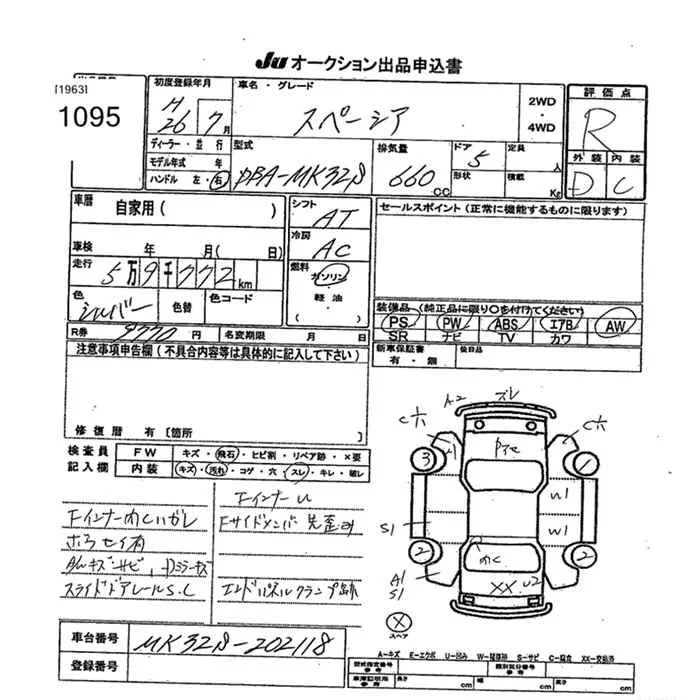 Ju オークション出品申込書
[1963]
1095
初度登録年月
H
26 7月
車名・グレード
スペーシア
2WD
・
4WD
評価点
R
外装 内装
D C
ディーラー・並行
モデル年式 年
ハンドル 左・右
型式
DBA-MK32S
排気量
660 CC
ドア 5
形状
定員 人
積載 Kg
車歴
自家用( )
車検 年 月( 日)
走行
5万9千772km
色
シルバー
色替
色コード
シフト
AT
冷房
AC
燃料
ガソリン
・
軽油
・
( )
セールスポイント(正常に機能するものに限ります)
装備品(純正品に限り○を付けてください)
PS PW ABS エアB AW
SR ナビ TV カワ
新車保証書
有・無
後日品
R券 9770円
名変期限 月 日
注意事項申告欄(不具合内容等は具体的に記入して下さい)
修復歴 有[箇所
検査員
記入欄
FW キズ・飛石・ヒビ割・リペア跡・×要
内装 キズ・汚れ・コゲ・穴・スレ・キレ・破レ
スライドドアレールS.C
エンドパネルクランプ跡
A2 スレ
C穴 C穴
3 A1 1
W1
S1 W1
2 2
A1
S1
XX U2
X
スペア
車台番号
MK32S-202118
登録番号
A-キズ E-エクボ U-凹み W-補修跡 S-サビ C-腐食 XX-交換済
型式指定番号
参考
類別区分番号
参考
車庫証明用
参考
長さ cm
幅 cm
高さ cm